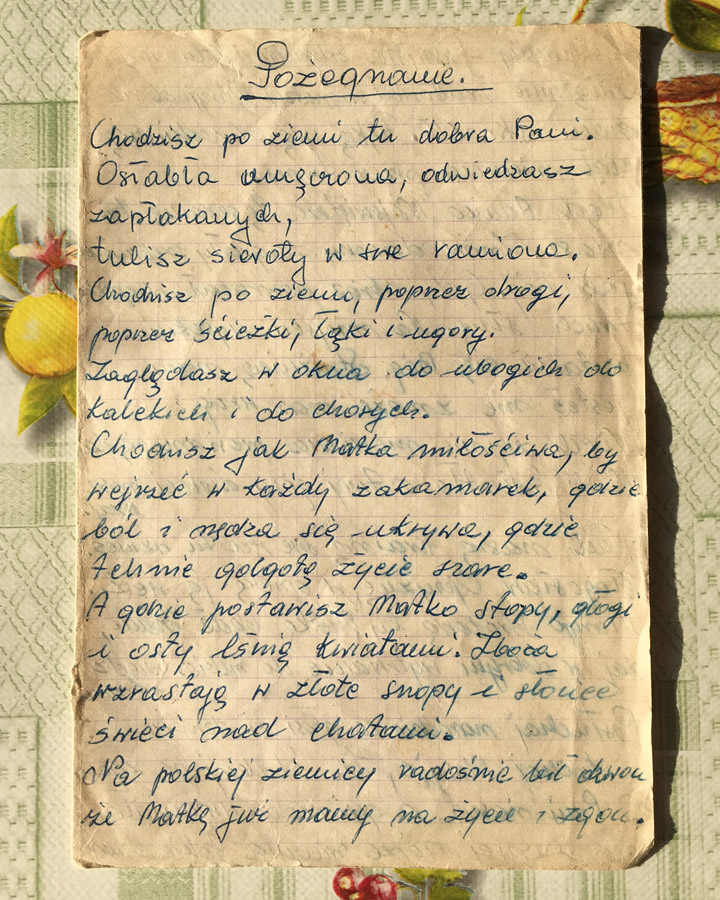 Pożegnanie.
Chodzisz po ziemi tu dobra Pani.
Osłabła umęczona, odwiedzasz
zapłakanych,
tulisz sieroty w swe ramiona.
Chodzisz po ziemi, poprzez drogi,
poprzez ścieżki, łąki i ugory.
Zaglądasz w okna do ubogich do
kalekich i do chorych.
Chodzisz jak Matka miłościwa, by
wejrzeć w każdy zakamarek, gdzie
ból i nędza się ukrywa, gdzie
tchnie golgotą życie szare.
A gdzie postawisz Matko stopy, głogi
i osty lśnią kwiatami. Zboża
wzrastają w złote snopy i słońce
świeci nad chatami.
Na polskiej ziemicy radośnie bił dzwon
że Matkę już mamy na życie i zgon.